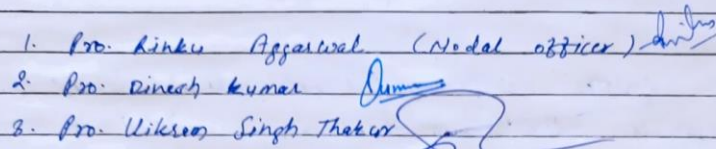 1. Pro. Rinku Aggarwal (Nodal officer)
2. Pro. Dinesh Kumar
3. Pro. Vikram Singh Thakur